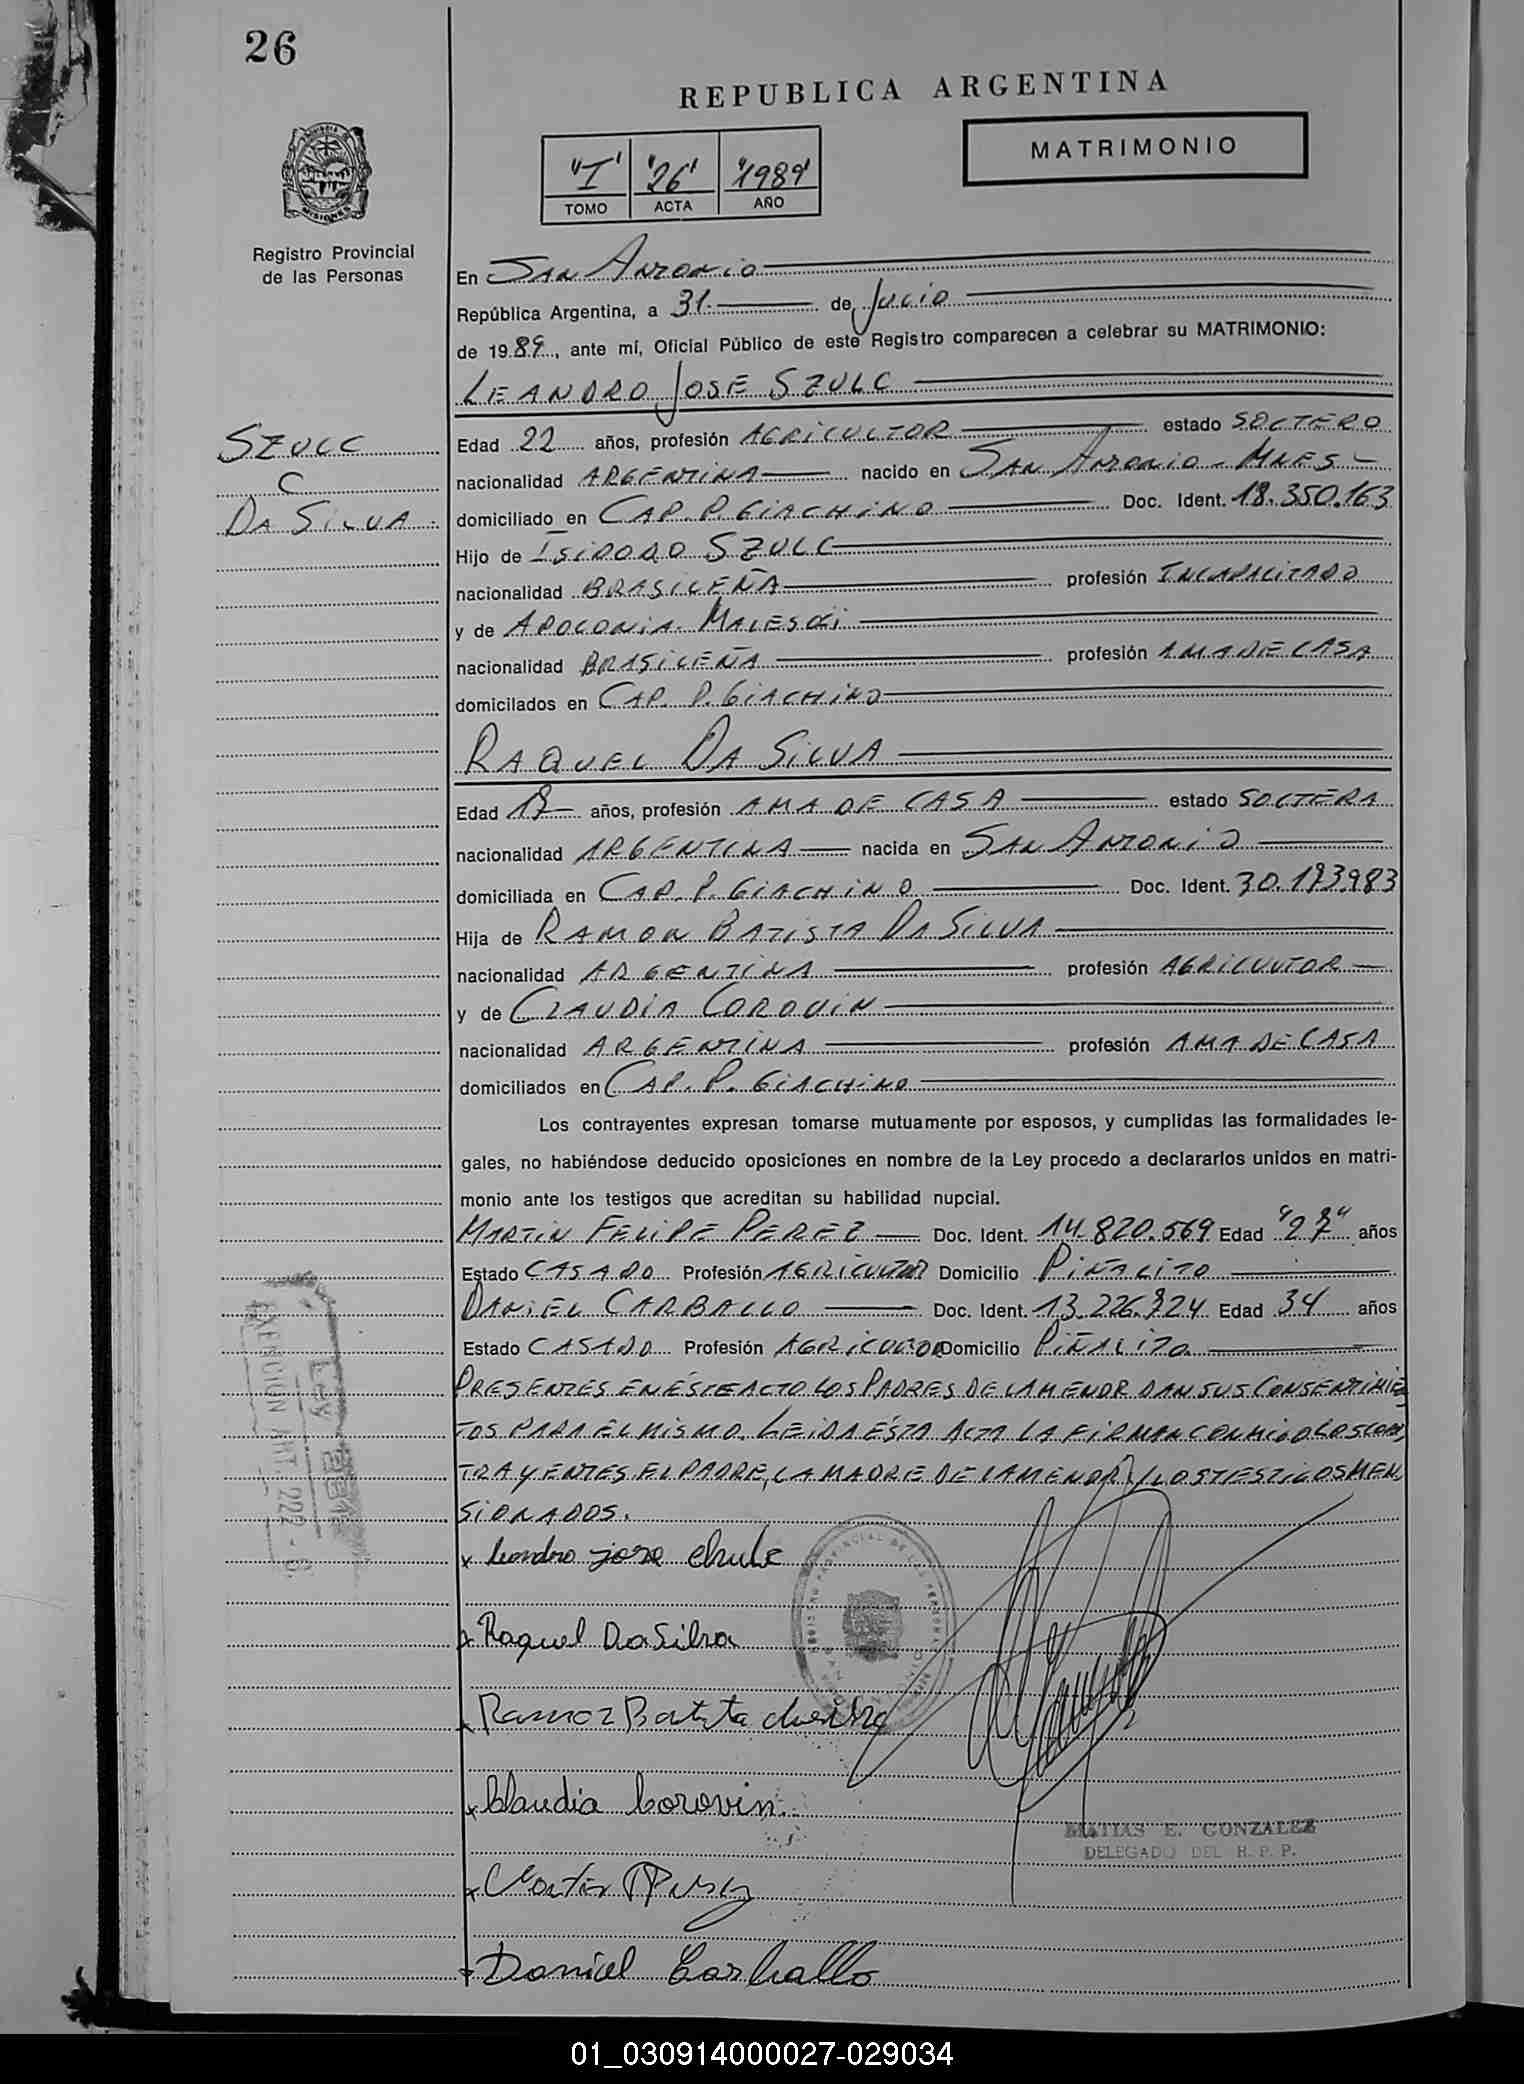 26
REPUBLICA ARGENTINA
MATRIMONIO
"I" "26" "1989"
TOMO ACTA AÑO
PROVINCIA DE MISIONES
Registro Provincial
de las Personas
En SAN ANTONIO
República Argentina, a 31. de JULIO
de 1989, ante mí, Oficial Público de este Registro comparecen a celebrar su MATRIMONIO:
LEANDRO JOSE SZULC
SZULC
C
DA SILVA.
Edad 22 años, profesión AGRICULTOR estado SOLTERO
nacionalidad ARGENTINA nacido en SAN ANTONIO - MNES -
domiciliado en CAP. P. GIACHINO Doc. Ident. 18.350.163
Hijo de ISIDORO SZULC
nacionalidad BRASILEÑA profesión INCAPACITADO
y de APOLONIA MALESKI
nacionalidad BRASILEÑA profesión AMA DE CASA
domicilados en CAP. P. GIACHINO
RAQUEL DA SILVA
Edad 17 años, profesión AMA DE CASA estado SOLTERA
nacionalidad ARGENTINA nacida en SAN ANTONIO
domiciliada en CAP. P. GIACHINO Doc. Ident. 30.193.983
Hija de RAMON BATISTA DA SILVA
nacionalidad ARGENTINA profesión AGRICULTOR
y de CLAUDIA COROVIN
nacionalidad ARGENTINA profesión AMA DE CASA
domiciliados en CAP. P. GIACHINO
Los contrayentes expresan tomarse mutuamente por esposos, y cumplidas las formalidades le-
gales, no habiéndose deducido oposiciones en nombre de la Ley procedo a declararlos unidos en matri-
monio ante los testigos que acreditan su habilidad nupcial.
MARTIN FELIPE PEREZ Doc. Ident. 14.820.569 Edad "27" años
Estado CASADO Profesión AGRICULTOR Domicilio PIÑALITO
DANIEL CARBALLO Doc. Ident. 13.226.724 Edad 34 años
Estado CASADO Profesión AGRICULTOR Domicilio PIÑALITO.
PRESENTES EN ÉSTE ACTO LOS PADRES DE LA MENOR DAN SUS CONSENTIMIEN
TOS PARA EL MISMO. LEIDA ÉSTA ACTA LA FIRMAN CONMIGO LOS CON,
TRAYENTES, EL PADRE, LA MADRE DE LA MENOR Y LOS TESTIGOS MEN,
SIONADOS.
EXENCION ART. 222 - 6
Ley
x leandro jose chulc
x Raquel Da Silva
x Ramon Batista
x Claudia Corovin
MATIAS E. GONZALEZ
DELEGADO DEL R. P. P.
x Martin
x Daniel Carballo
01_030914000027-029034